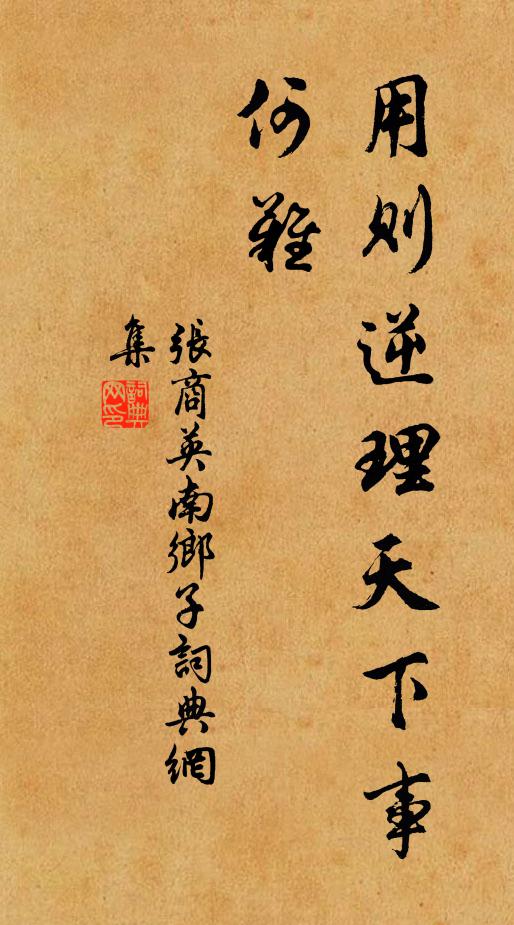 用则逆理天下事
何難
張商英南鄉子詞典網
集
詞典
网印